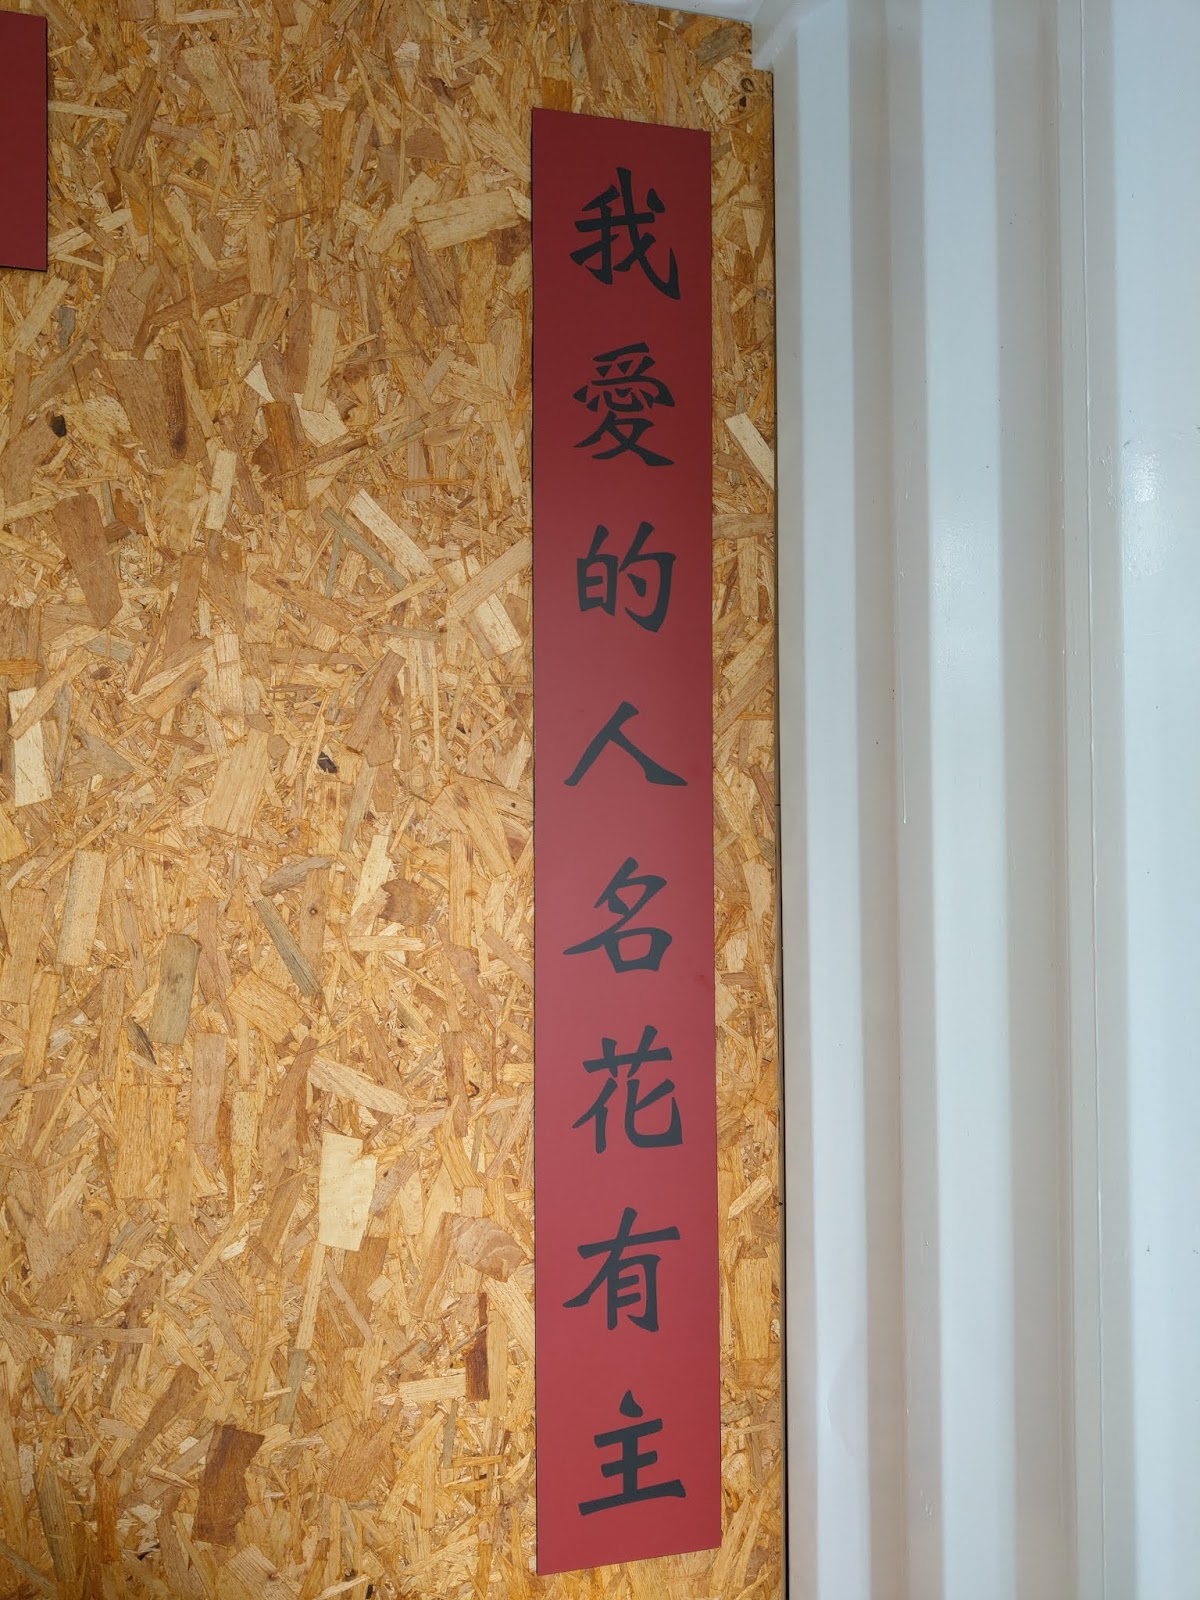 我愛的人名花有主